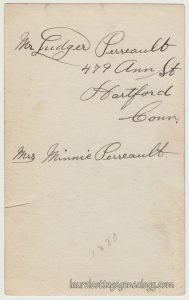 Mr Ludger Perreault
479 Ann St
Hartford
Conn.
Mrs Minnie Perreault
1880
laurelcottagegenealogy.com